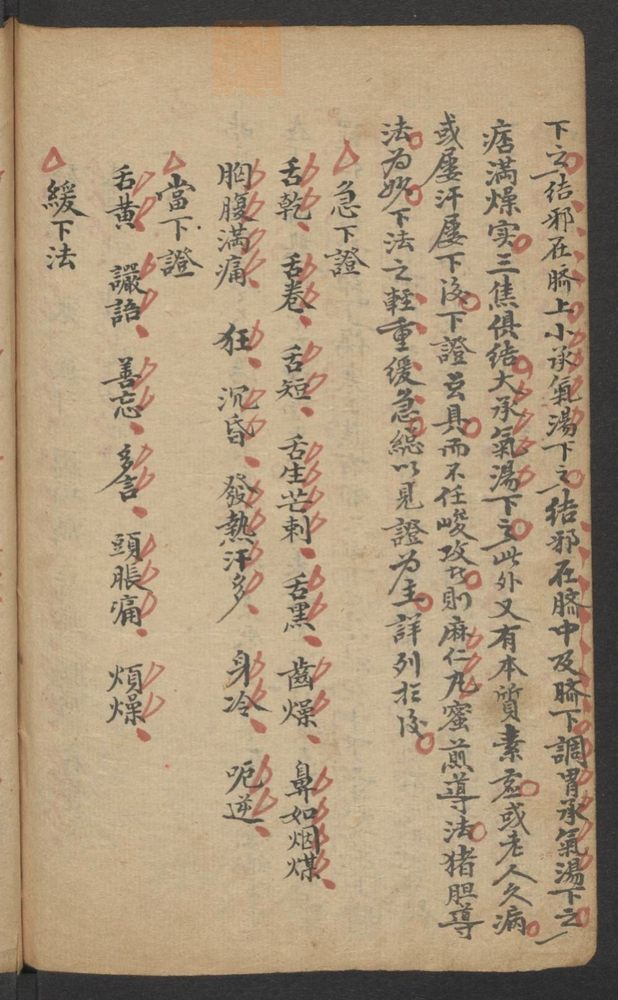 下之結邪在臍上小承氣湯下之結邪在臍中及臍下調胃承氣湯下之
痞滿燥实三焦俱結大承氣湯下之此外又有本質素虛或老人久病
或屡汗屡下後下證虽具而不任峻攻者則麻仁丸蜜煎導法猪胆導
法為妙下法之輕重緩急總以見證為主詳列於後
急下證
舌乾 舌卷 舌短 舌生芒刺 舌黑 齒燥 鼻如烟煤
胸腹滿痛 狂 沉昏 發熱汗多 身冷 呃逆
當下證
舌黄 讝語 善忘 多言 頭脹痛 煩燥
緩下法